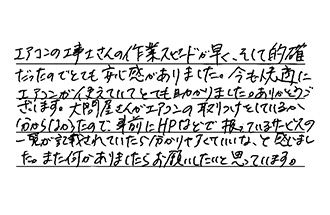 エアコンの工事士さんの作業スピードが早く、そして的確
だったのでとても安心感がありました。今も快適に
エアコンが使えていてとても助かりました。ありがとうご
ざいます。大間屋さんがエアコンの取りつけをしているか
分からなかったので、事前にHPなどで扱っているサービスの
一覧が記載されていたら分かりやすくていいな、と感じまし
た。また何かありましたらお願いしたいと思っています。